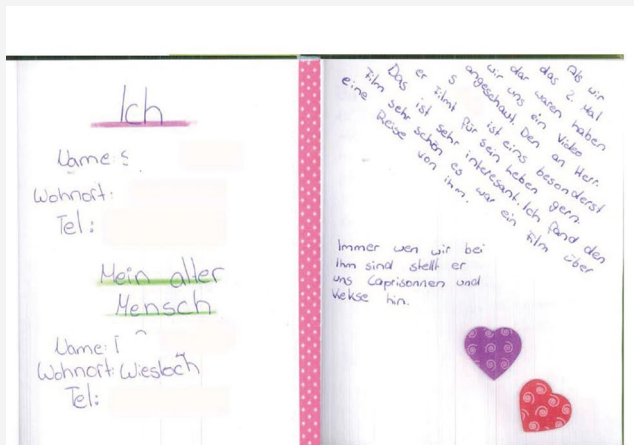 Ich
Name: S
Wohnort:
Tel:
Mein alter
Mensch
Name: T
Wohnort: Wiesloch
Tel:
Als wir
das 2. Mal
dar waren haben
wir uns ein Video
angeschaut. Den an Herr.
S ist eins besonderst
er Filmt für sein leben gern.
Das ist sehr interesant. Ich fand den
Film sehr schön es war ein Film über
eine Reise von ihm.
Immer wen wir bei
Ihm sind stellt er
uns Caprisonnen und
Kekse hin.